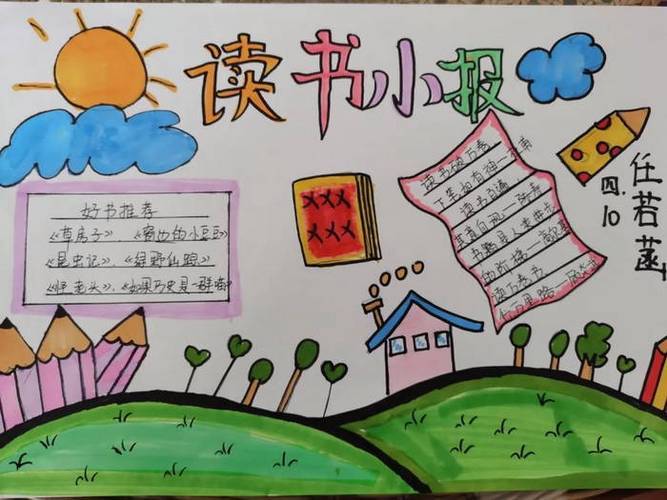 读书小报
好书推荐
《草房子》、《窗边的小豆豆》
《昆虫记》、《绿野仙踪》
《怪老头》、《如果历史是一群喵
XXX
XXX
读书破万卷
下笔如有神—杜甫
读书百遍
其意自现—陈寿
书籍是人类进步
的阶梯—高尔基
读万卷书
行万里路—
四.10
任若菡